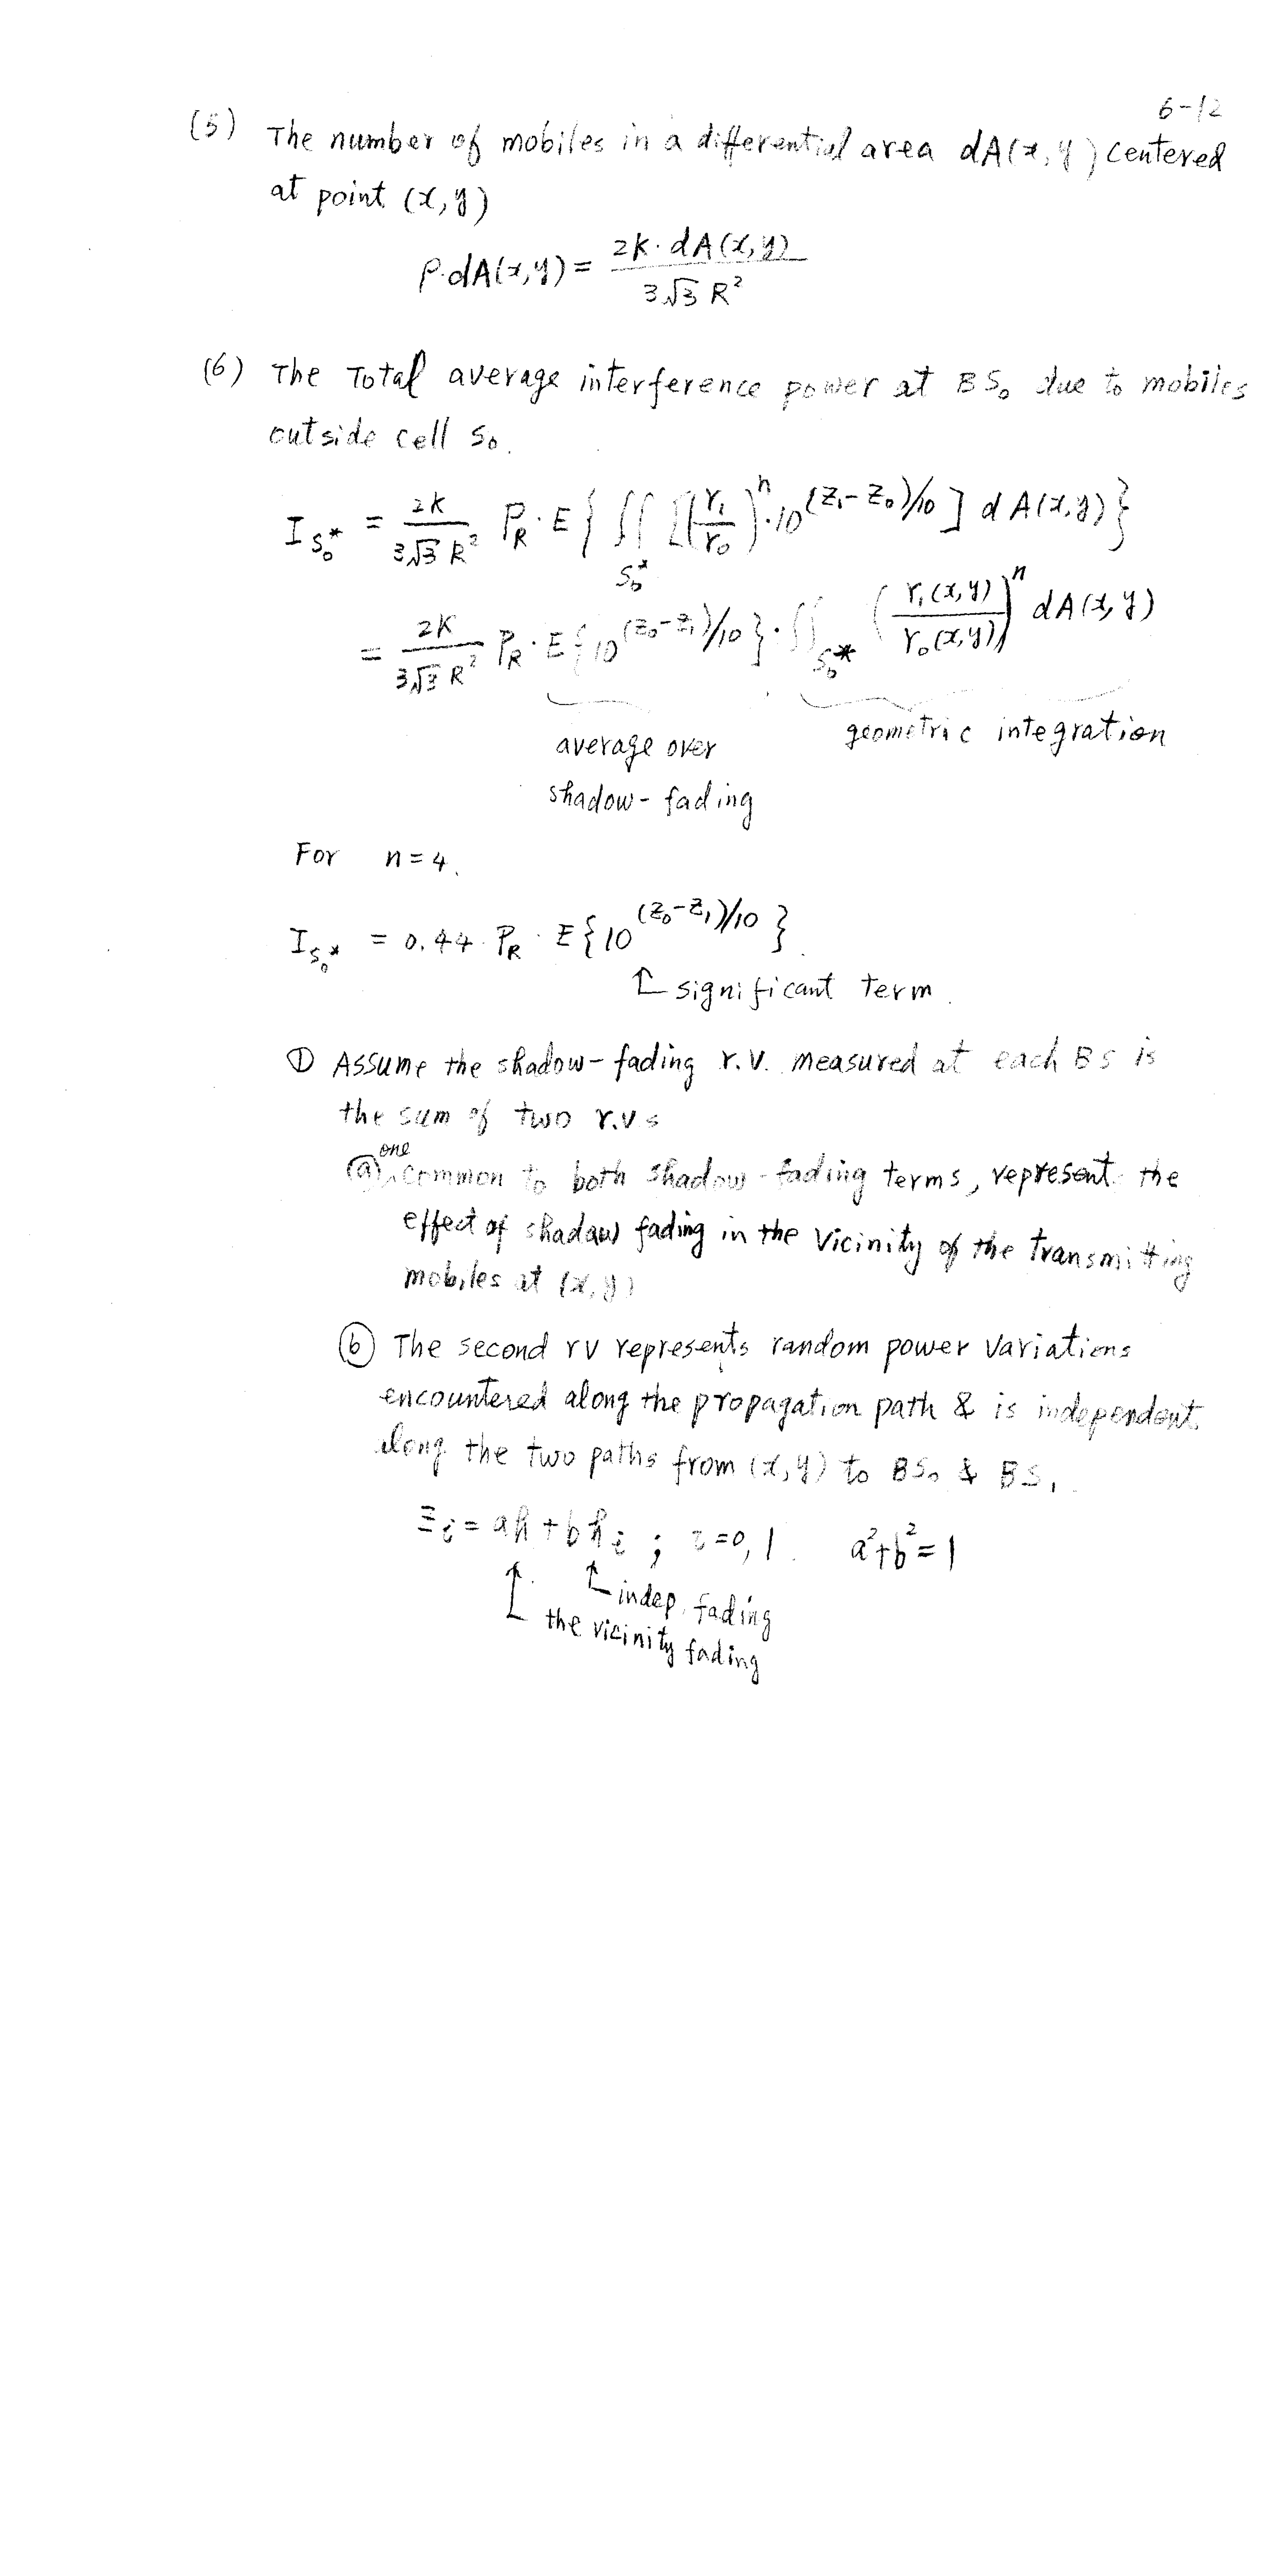 6-12
(5) The number of mobiles in a differential area dA(x,y) centered
at point (x,y)
ρ·dA(x,y) = 2K·dA(x,y) / 3√3 R²
(6) The Total average interference power at BS₀ due to mobiles
outside cell S₀.
I_{S₀*} = 2K / 3√3 R² P_R · E{ ∬_{S₀*} [(r₁/r₀)^n · 10^{(Z₁-Z₀)/10}] dA(x,y)}
= 2K / 3√3 R² P_R · E{10^{(Z₀-Z₁)/10}} · ∬_{S₀*} (r₁(x,y) / r₀(x,y))^n dA(x,y)
average over geometric integration
shadow-fading
For n=4.
I_{S₀*} = 0.44 · P_R · E{10^{(Z₀-Z₁)/10}}
↑ significant term.
① Assume the shadow-fading r.v. measured at each BS is
the sum of two r.v.s
ⓐ one common to both shadow-fading terms, represent the
effect of shadow fading in the vicinity of the transmitting
mobiles at (x,y)
ⓑ The second rv represents random power variations
encountered along the propagation path & is independent
along the two paths from (x,y) to BS₀ & BS₁.
Ξ_i = ah + bh_i ; i=0,1. a²+b²=1
↑ indep. fading
↑ the vicinity fading